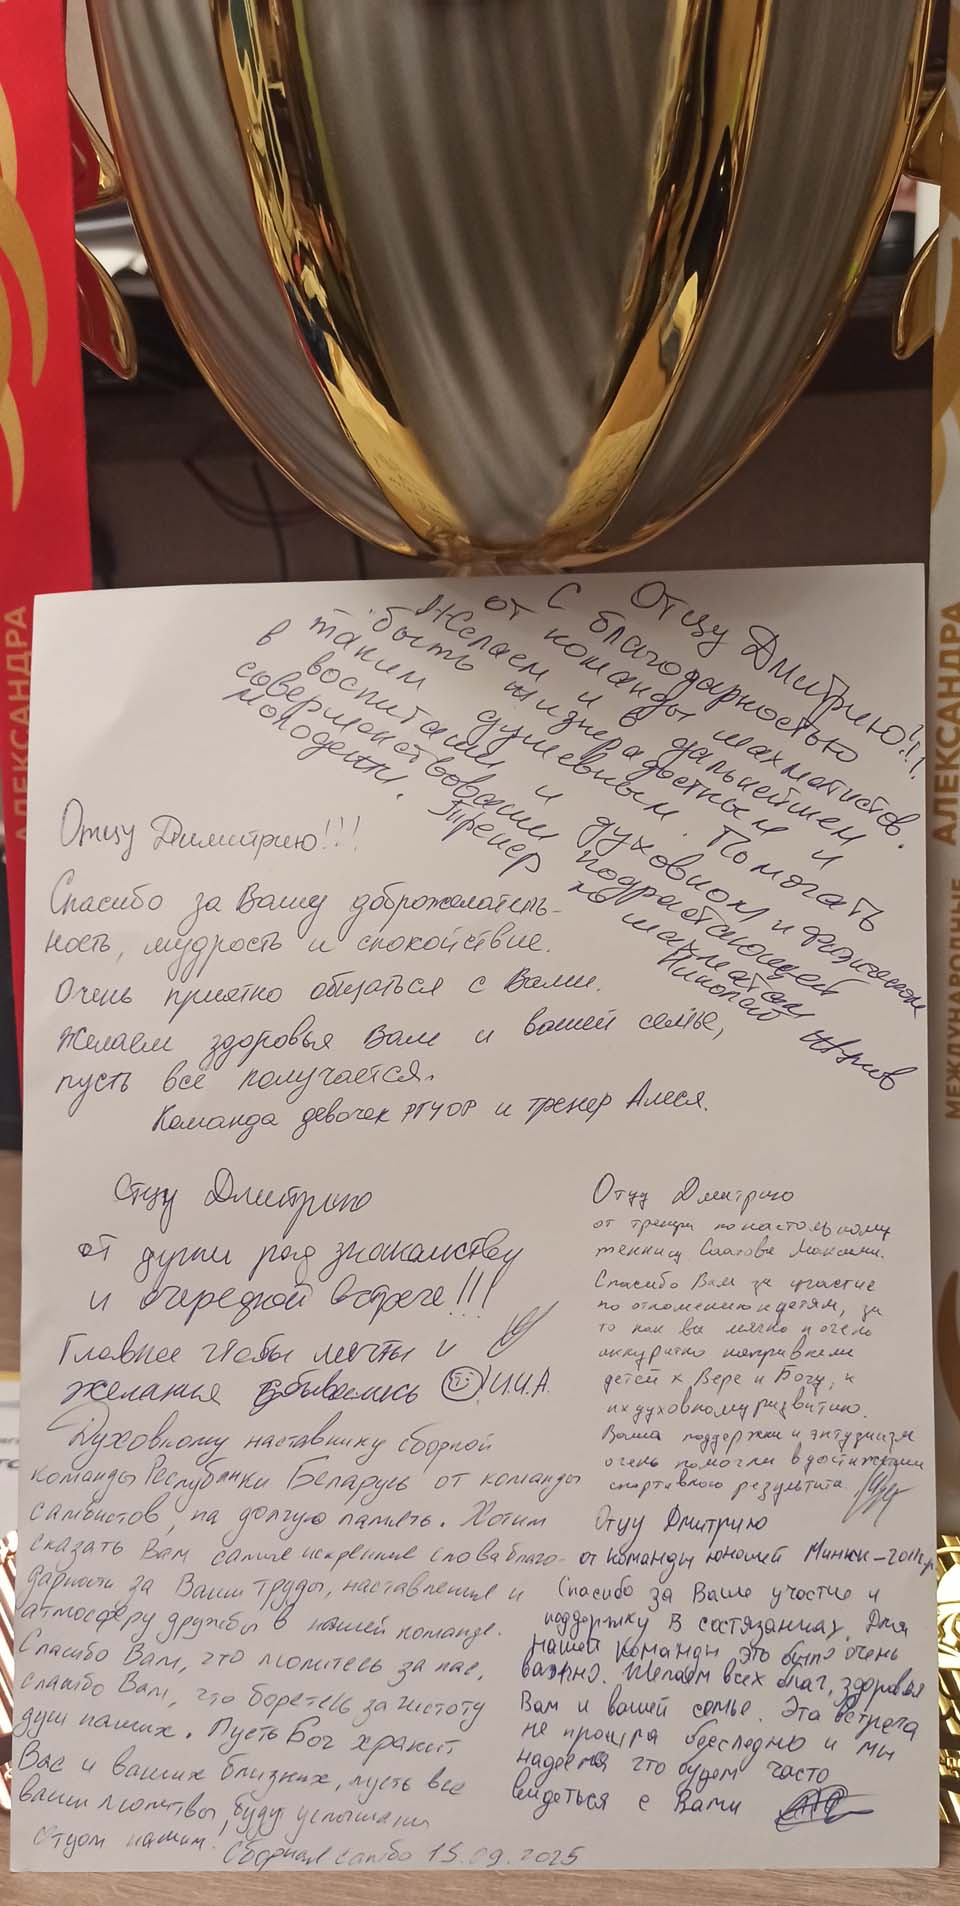 АЛЕКСАНДРА
АЛЕКСАНДРА
МЕЖДУНАРОДНЫЕ
Отцу Дмитрию!!!
С благодарностью
от команды шахматистов.
Желаем и в дальнейшем
быть жизнерадостным и
таким душевным. Помогать
в воспитании и духовном и физическом
совершенствовании подрастающей
молодежи. Тренер по шахматам
Николай
Отцу Димитрию!!!
Спасибо за Вашу доброжелатель-
ность, мудрость и спокойствие.
Очень приятно общаться с Вами.
Желаем здоровья Вам и вашей семье,
пусть всё получается.
Команда девочек РГУОР и тренер Алеся.
Отцу Дмитрию
от души рад знакомству
и очередной встрече!!!
Главное чтобы мечты и
желания сбывались И.И.А.
Духовному наставнику сборной
команды Республики Беларусь от команды
самбистов, на долгую память. Хотим
сказать Вам самые искренние слова благо-
дарности за Ваши труды, наставления и
атмосферу дружбы в нашей команде.
Спасибо Вам, что молитесь за нас,
спасибо Вам, что боретесь за чистоту
душ наших. Пусть Бог хранит
Вас и ваших близких, пусть все
ваши молитвы, будут услышаны
отцом нашим!
Сборная самбо 15.09.2025
Отцу Дмитрию
от тренера по настольному
теннису
Спасибо Вам за участие
по отношению к детям, за
то как вы мягко и очень
аккуратно направляли
детей к Вере и Богу, к
их духовному развитию.
Ваша поддержка и энтузиазм
очень помогли в достижении
спортивного результата.
Отцу Дмитрию
от команды юношей Минск-
Спасибо за Ваше участие и
поддержку в состязаниях. Для
нашей команды это было очень
важно. Желаем всех благ, здоровья
Вам и вашей семье. Эта встреча
не прошла бесследно и мы
надеемся что будем часто
видеться с Вами